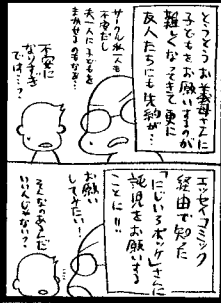 とうとうお義母さんに
子どもをお願いするのが
難しくなってきて更に
友人たちにも先約が…
サークル私一人も
不安だし
夫一人に子どもを
まかせるのもなぁ…
不安に
なりすぎ
では…?
エッセイコミック
経由で知った
「にじいろポッケ」さんに
託児をお願いする
ことに!!
お願い
してみたい!!
そんなのあるんだ
いいんじゃない?